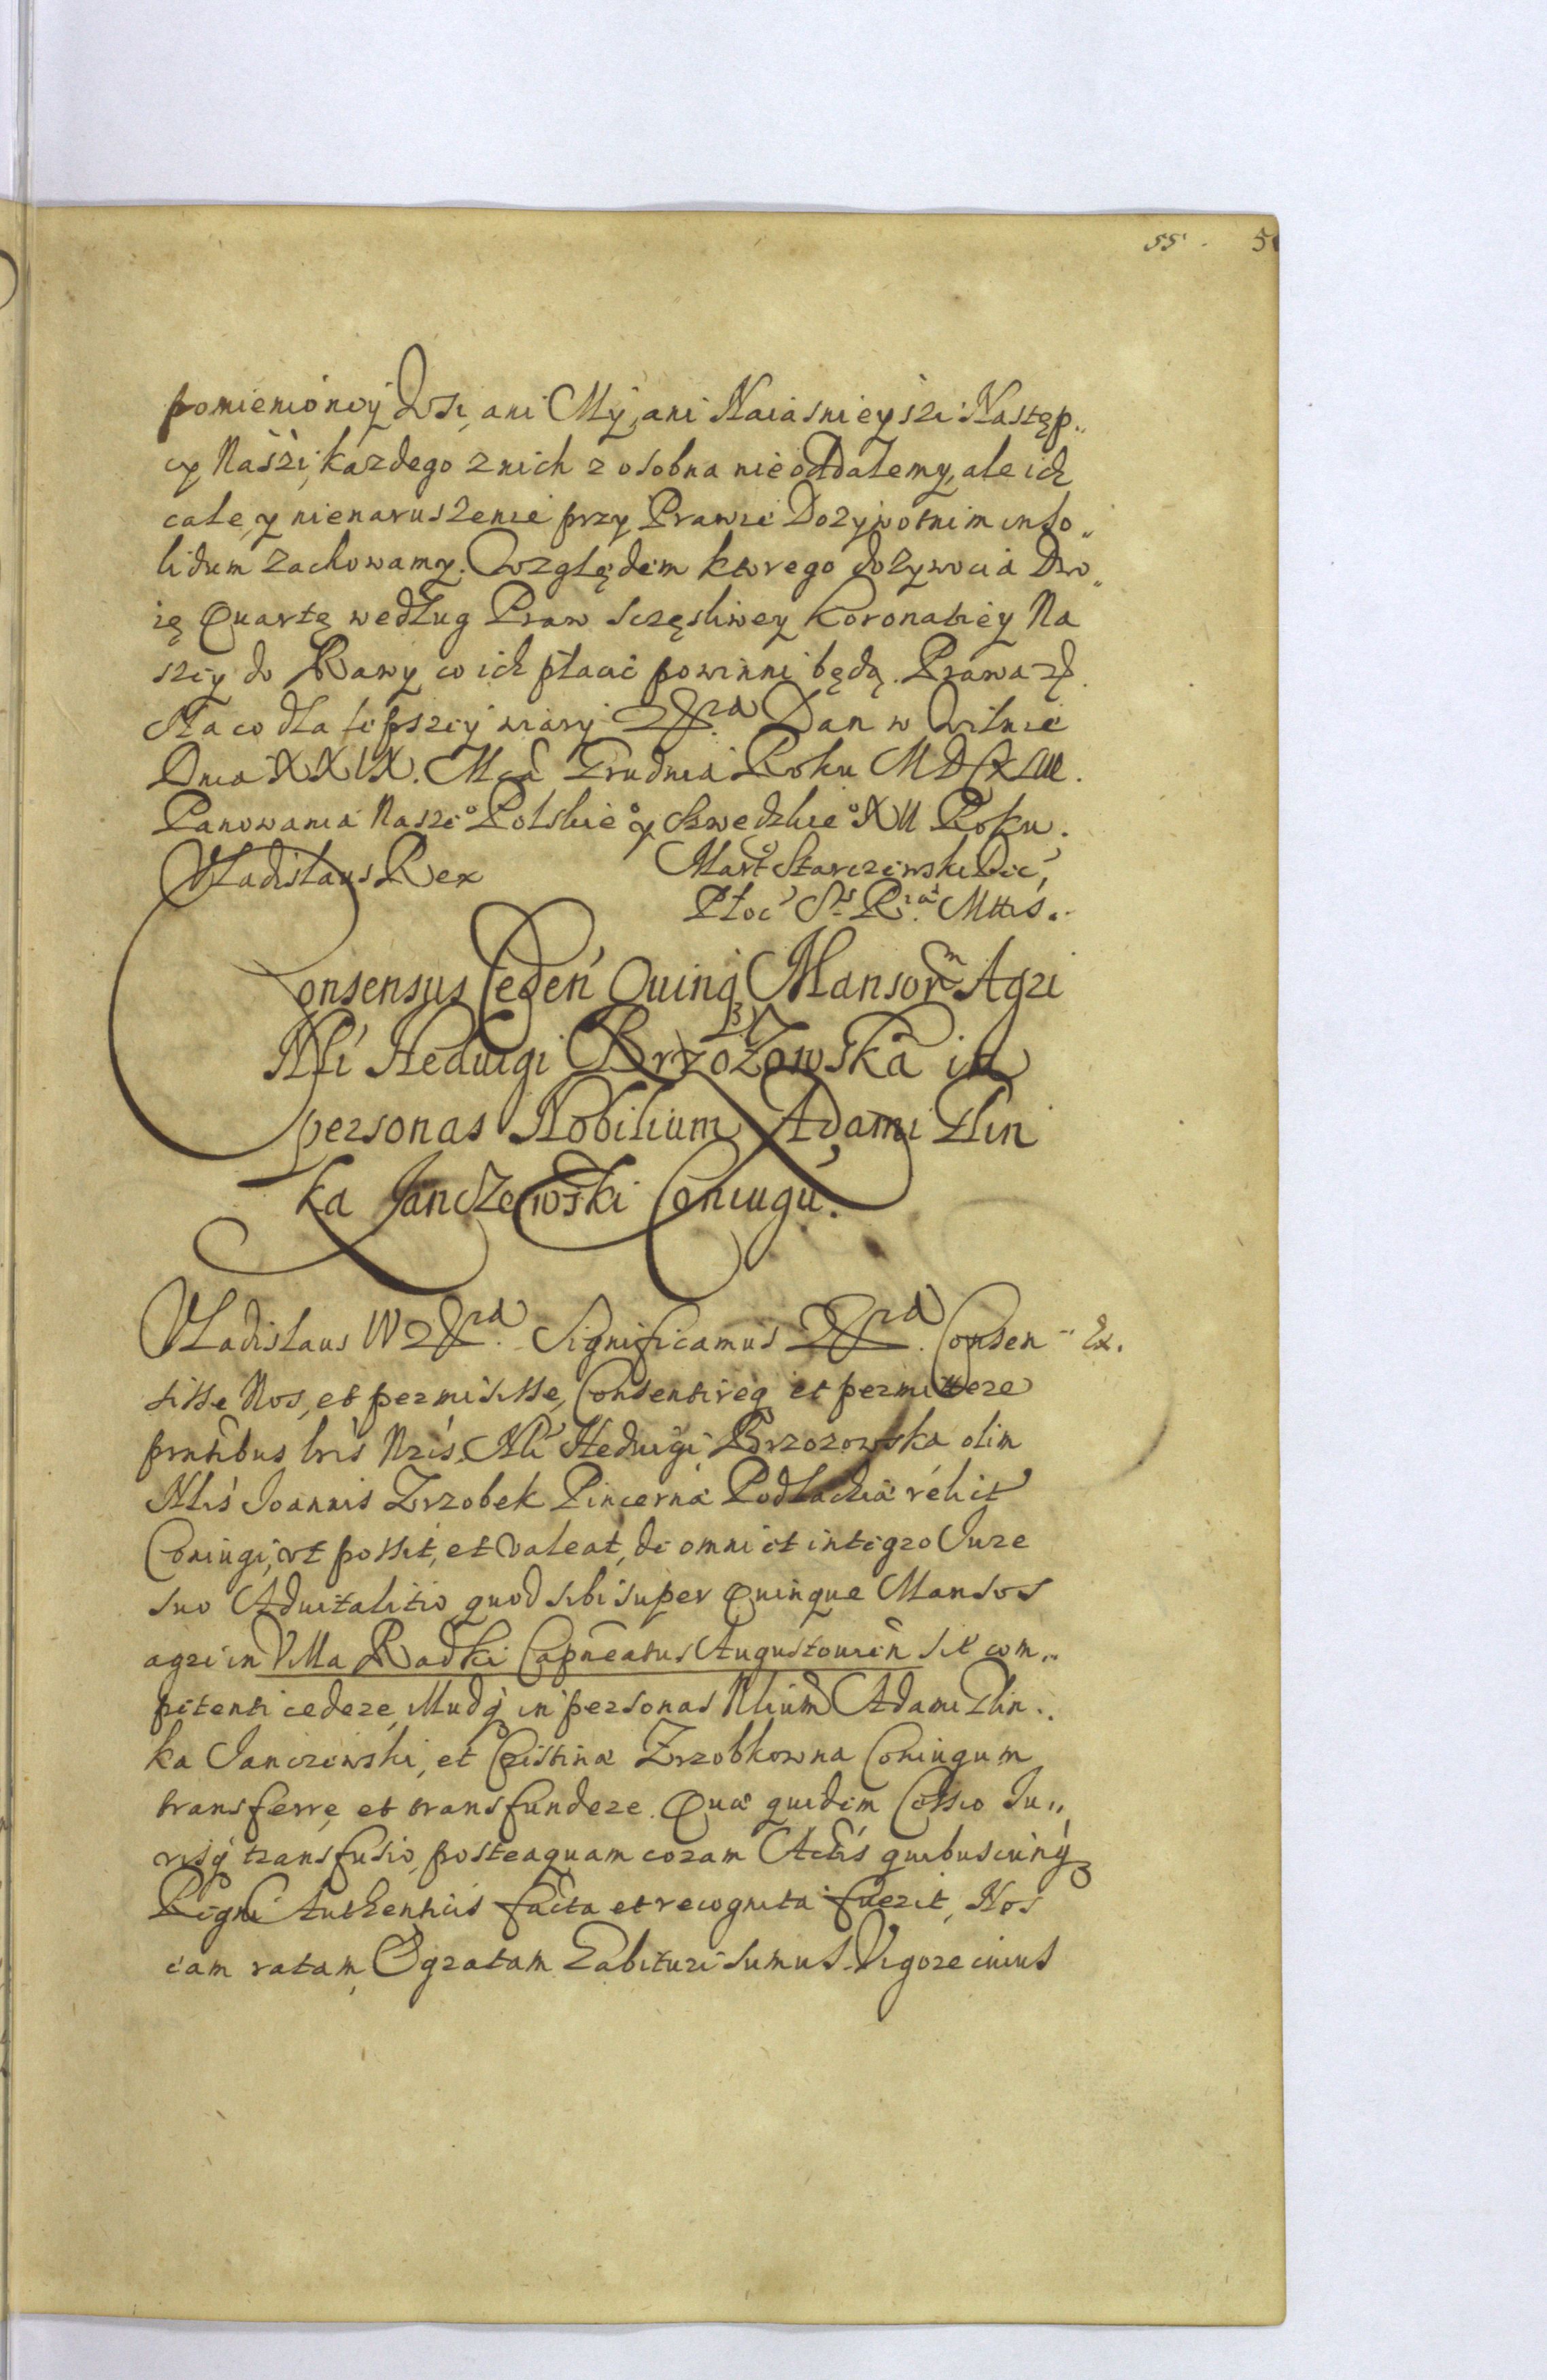 55 . 5
pomienioney Wsi, ani My, ani Naiasnieyszi Następ„
cy Naszi, kazdego z nich z osobna nie oddalemy, ale ich
cale, y nienaruszenie przy Prawie Dozywotnim inso„
lidum zachowamy. Względem ktorego dozywocia Dwo„
ię Quartę według Praw sczęsliwey Koronatiey Na
szey do Rawy co ich płacić powinni będą. Prawa
Na co dla lepszey wiary Dan w Wilnie
Dnia XXIX. Mca Grudnia Roku
Panowania Nasze° Polskie° y Szwedzkie° XII Roku.
Vladislaus Rex Mart Starczewski Dec,
Płoc S. R. Mttis.
Consensus Ceden Quinq Mansor Agri
Nli Heduigi Brzozowska in
personas Nobilium Adami Glin
ka Janczewski Coniugu.
Vladislaus IV Significamus Consen Ex.
sisse Nos, et permisisse, Consentireq et permittere
pntibus lris Nris, Nli Heduigi Brzozowska olim
Nlis Joannis Zrzobek Pincerna Podlachiæ relict
Coniugi, vt possit, et valeat, de omni et integro Jure
suo Aduitalitio, quod sibi super Quinque Mansos
agri in Villa Radki Capneatus Augustouien sit com„
petenti cedere, illudq in personas Nlium Adami Glin„
ka Janczewski, et Cristina Zrzobkowna Coniugum
transferre, et transfundere. Quæ quidem Cessio Ju„
risq transfusio, posteaquam coram Actis quibuscunq
Regni Authenticis facta et recognita fuerit, Nos
eam ratam, & gratam habituri sumus. Vigore cuius